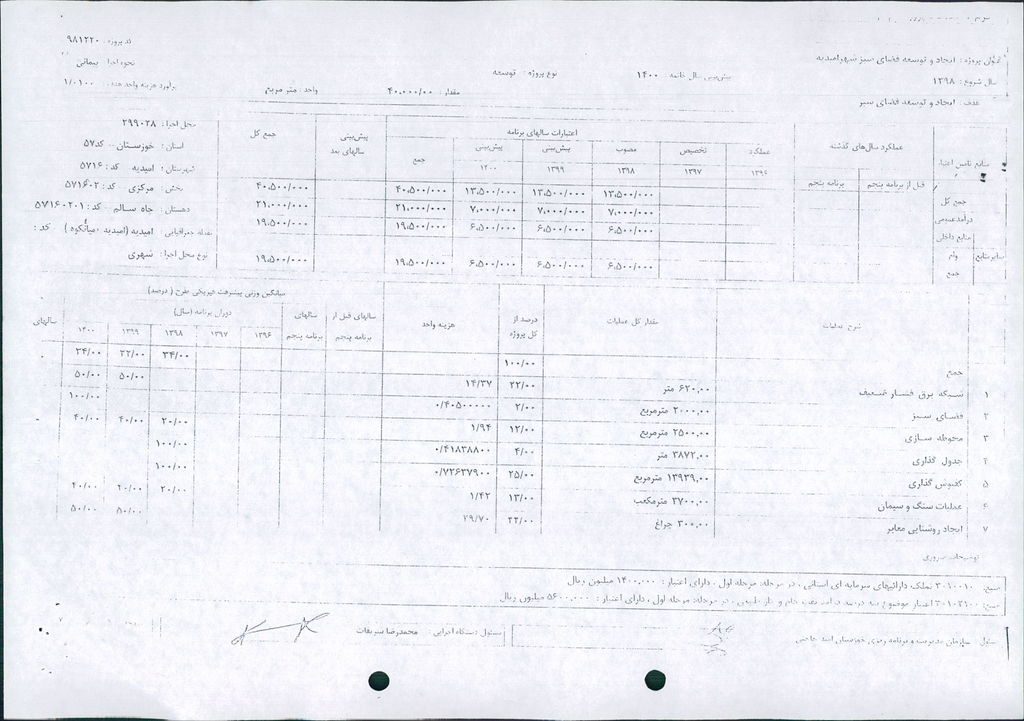 کد پروژه : ۹۸۱۲۲۰
عنوان پروژه : ایجاد و توسعه فضای سبز شهر امیدیه
نحوه اجرا : پیمانی
سال شروع : ۱۳۹۸
پیش‌بینی سال خاتمه : ۱۴۰۰
نوع پروژه : توسعه
برآورد هزینه واحد هدف : ۱/۰۱۰۰
هدف : ایجاد و توسعه فضای سبز
مقدار : ۴۰،۰۰۰/۰۰
واحد : متر مربع
محل اجرا : ۲۹۹۰۲۸
استان : خوزستان - کد ۵۷
شهرستان : امیدیه کد : ۵۷۱۶
بخش : مرکزی کد : ۵۷۱۶۰۲
دهستان : چاه سالم - کد : ۵۷۱۶۰۲۰۱
نقطه جغرافیایی : امیدیه (امیدیه - میانکوه) کد :
نوع محل اجرا : شهری
منابع تامین اعتبار عملکرد سال‌های گذشته اعتبارات سالهای برنامه پیش‌بینی سالهای بعد جمع کل
قبل از برنامه پنجم برنامه پنجم عملکرد ۱۳۹۶ تخصیص ۱۳۹۷ مصوب ۱۳۹۸ پیش‌بینی ۱۳۹۹ پیش‌بینی ۱۴۰۰ جمع
جمع کل ۱۳،۵۰۰/۰۰۰ ۱۳،۵۰۰/۰۰۰ ۱۳،۵۰۰/۰۰۰ ۴۰،۵۰۰/۰۰۰ ۴۰،۵۰۰/۰۰۰
درآمد عمومی ۷،۰۰۰/۰۰۰ ۷،۰۰۰/۰۰۰ ۷،۰۰۰/۰۰۰ ۲۱،۰۰۰/۰۰۰ ۲۱،۰۰۰/۰۰۰
سایر منابع
منابع داخلی ۶،۵۰۰/۰۰۰ ۶،۵۰۰/۰۰۰ ۶،۵۰۰/۰۰۰ ۱۹،۵۰۰/۰۰۰ ۱۹،۵۰۰/۰۰۰
وام
جمع ۶،۵۰۰/۰۰۰ ۶،۵۰۰/۰۰۰ ۶،۵۰۰/۰۰۰ ۱۹،۵۰۰/۰۰۰ ۱۹،۵۰۰/۰۰۰
میانگین وزنی پیشرفت فیزیکی طرح (درصد)
شرح عملیات مقدار کل عملیات درصد از کل پروژه هزینه واحد سالهای قبل از برنامه پنجم سالهای برنامه پنجم دوران برنامه (سال) سالهای
۱۳۹۶ ۱۳۹۷ ۱۳۹۸ ۱۳۹۹ ۱۴۰۰
جمع ۱۰۰/۰۰ ۳۴/۰۰ ۳۲/۰۰ ۳۴/۰۰
۱ شبکه برق فشار ضعیف ۶۲۰،۰۰ متر ۲۲/۰۰ ۱۴/۳۷ ۵۰/۰۰ ۵۰/۰۰
۲ فضای سبز ۲۰۰۰،۰۰ مترمربع ۲/۰۰ ۰/۴۰۵۰۰۰۰۰ ۱۰۰/۰۰
۳ محوطه سازی ۲۵۰۰،۰۰ مترمربع ۱۲/۰۰ ۱/۹۴ ۲۰/۰۰ ۴۰/۰۰ ۴۰/۰۰
۴ جدول گذاری ۳۸۷۲،۰۰ متر ۴/۰۰ ۰/۴۱۸۳۸۸۰۰ ۱۰۰/۰۰
۵ کفپوش گذاری ۱۳۹۳۹،۰۰ مترمربع ۲۵/۰۰ ۰/۷۲۶۳۷۹۰۰ ۱۰۰/۰۰
۶ عملیات سنگ و سیمان ۳۷۰۰،۰۰ مترمکعب ۱۳/۰۰ ۱/۴۲ ۲۰/۰۰ ۴۰/۰۰ ۴۰/۰۰
۷ ایجاد روشنایی معابر ۳۰۰،۰۰ چراغ ۲۲/۰۰ ۲۹/۷۰ ۵۰/۰۰ ۵۰/۰۰
توضیحات ضروری
منبع: ۳۰۱۰۰۱۰ تملک دارائیهای سرمایه ای استانی ، در مرحله: مرحله اول ، دارای اعتبار : ۱۴۰۰،۰۰۰ میلیون ریال
منبع: ۳۰۱۰۳۱۰۰ اعتبار موضوع سه درصد درآمد نفت خام و گاز طبیعی ، در مرحله: مرحله اول ، دارای اعتبار : ۵۶۰۰،۰۰۰ میلیون ریال
مسئول سازمان مدیریت و برنامه ریزی خوزستان
مسئول دستگاه اجرایی : محمدرضا شریفات